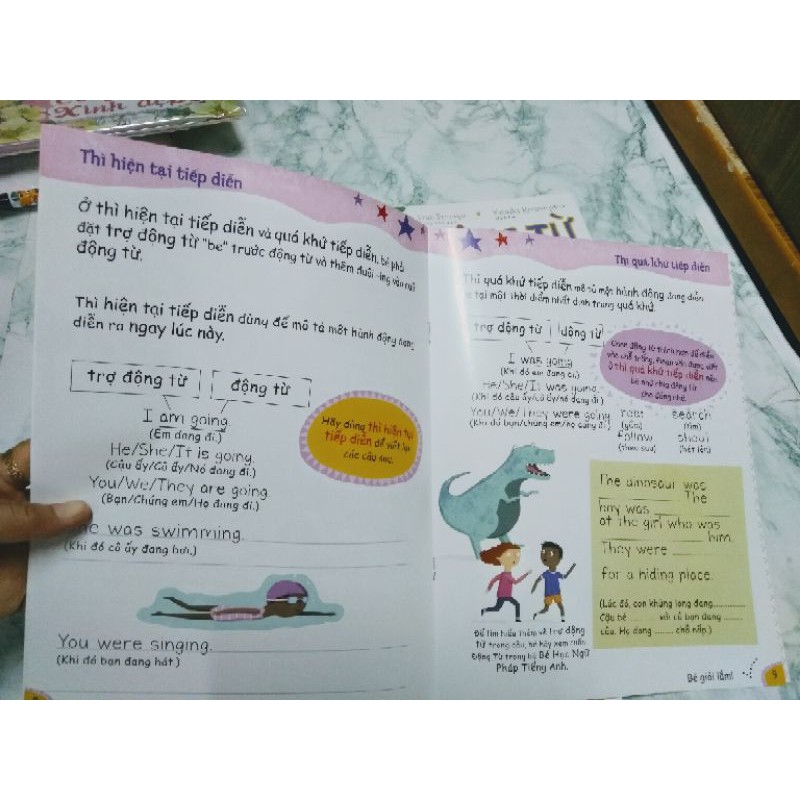 Xinh
Thì hiện tại tiếp diễn
Ở thì hiện tại tiếp diễn và quá khứ tiếp diễn, bé phải
đặt trợ động từ "be" trước động từ và thêm đuôi -ing vào
động từ.
Thì hiện tại tiếp diễn dùng để mô tả một hành động đang
diễn ra ngay lúc này.
trợ động từ
động từ
I am going
(Em đang đi.)
He/She/It is going.
(Cậu ấy/Cô ấy/Nó đang đi.)
You/We/They are going
(Bạn/Chúng em/Họ đang đi.)
Hãy dùng thì hiện tại
tiếp diễn để viết lại
các câu sau.
was swimming.
(Khi đó cô ấy đang bơi.)
You were singing.
(Khi đó bạn đang hát.)
TỪ
Thì quá khứ tiếp diễn
Thì quá khứ tiếp diễn mô tả một hành động đang diễn
ra tại một thời điểm nhất định trong quá khứ.
trợ động từ
động từ
I was going
(Khi đó em đang đi.)
He/She/It was going.
(Khi đó cậu ấy/cô ấy/nó đang đi.)
You/We/They were going
(Khi đó bạn/chúng em/họ đang đi.)
Chọn động từ thích hợp để điền
vào chỗ trống. Đoạn văn được viết
ở thì quá khứ tiếp diễn nên
bé nhớ chia động từ
cho đúng nhé.
roar
search
(gầm)
(tìm)
follow
shout
(theo sau)
(hét lên)
The dinosaur was
The
boy was
at the girl who was
him.
They were
for a hiding place.
(Lúc đó, con khủng long đang
Cậu bé với cô bạn đang
cậu. Họ đang chỗ nấp.)
Để tìm hiểu thêm về trợ động
từ trong câu, bé hãy xem cuốn
Động Từ trong bộ Bé Học Ngữ
Pháp Tiếng Anh.
Bé giỏi lắm!
9